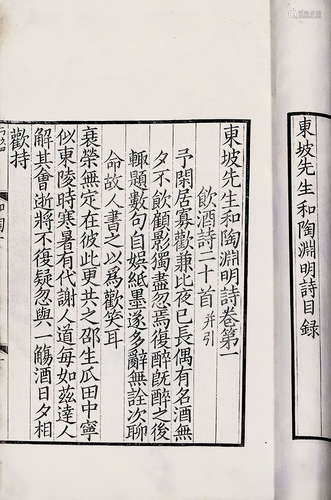 東坡先生和陶淵明詩目録
東坡先生和陶淵明詩卷第一
飲酒詩二十首并引
予閑居寡歡兼比夜已長偶有名酒無
夕不飲顧影獨盡忽焉復醉旣醉之後
輒題數句自娱紙墨遂多辭無詮次聊
命故人書之以爲歡笑耳
衰榮無定在彼此更共之邵生瓜田中寧
似東陵時寒暑有代謝人道每如兹達人
解其會逝將不復疑忽與一觴酒日夕相
歡持